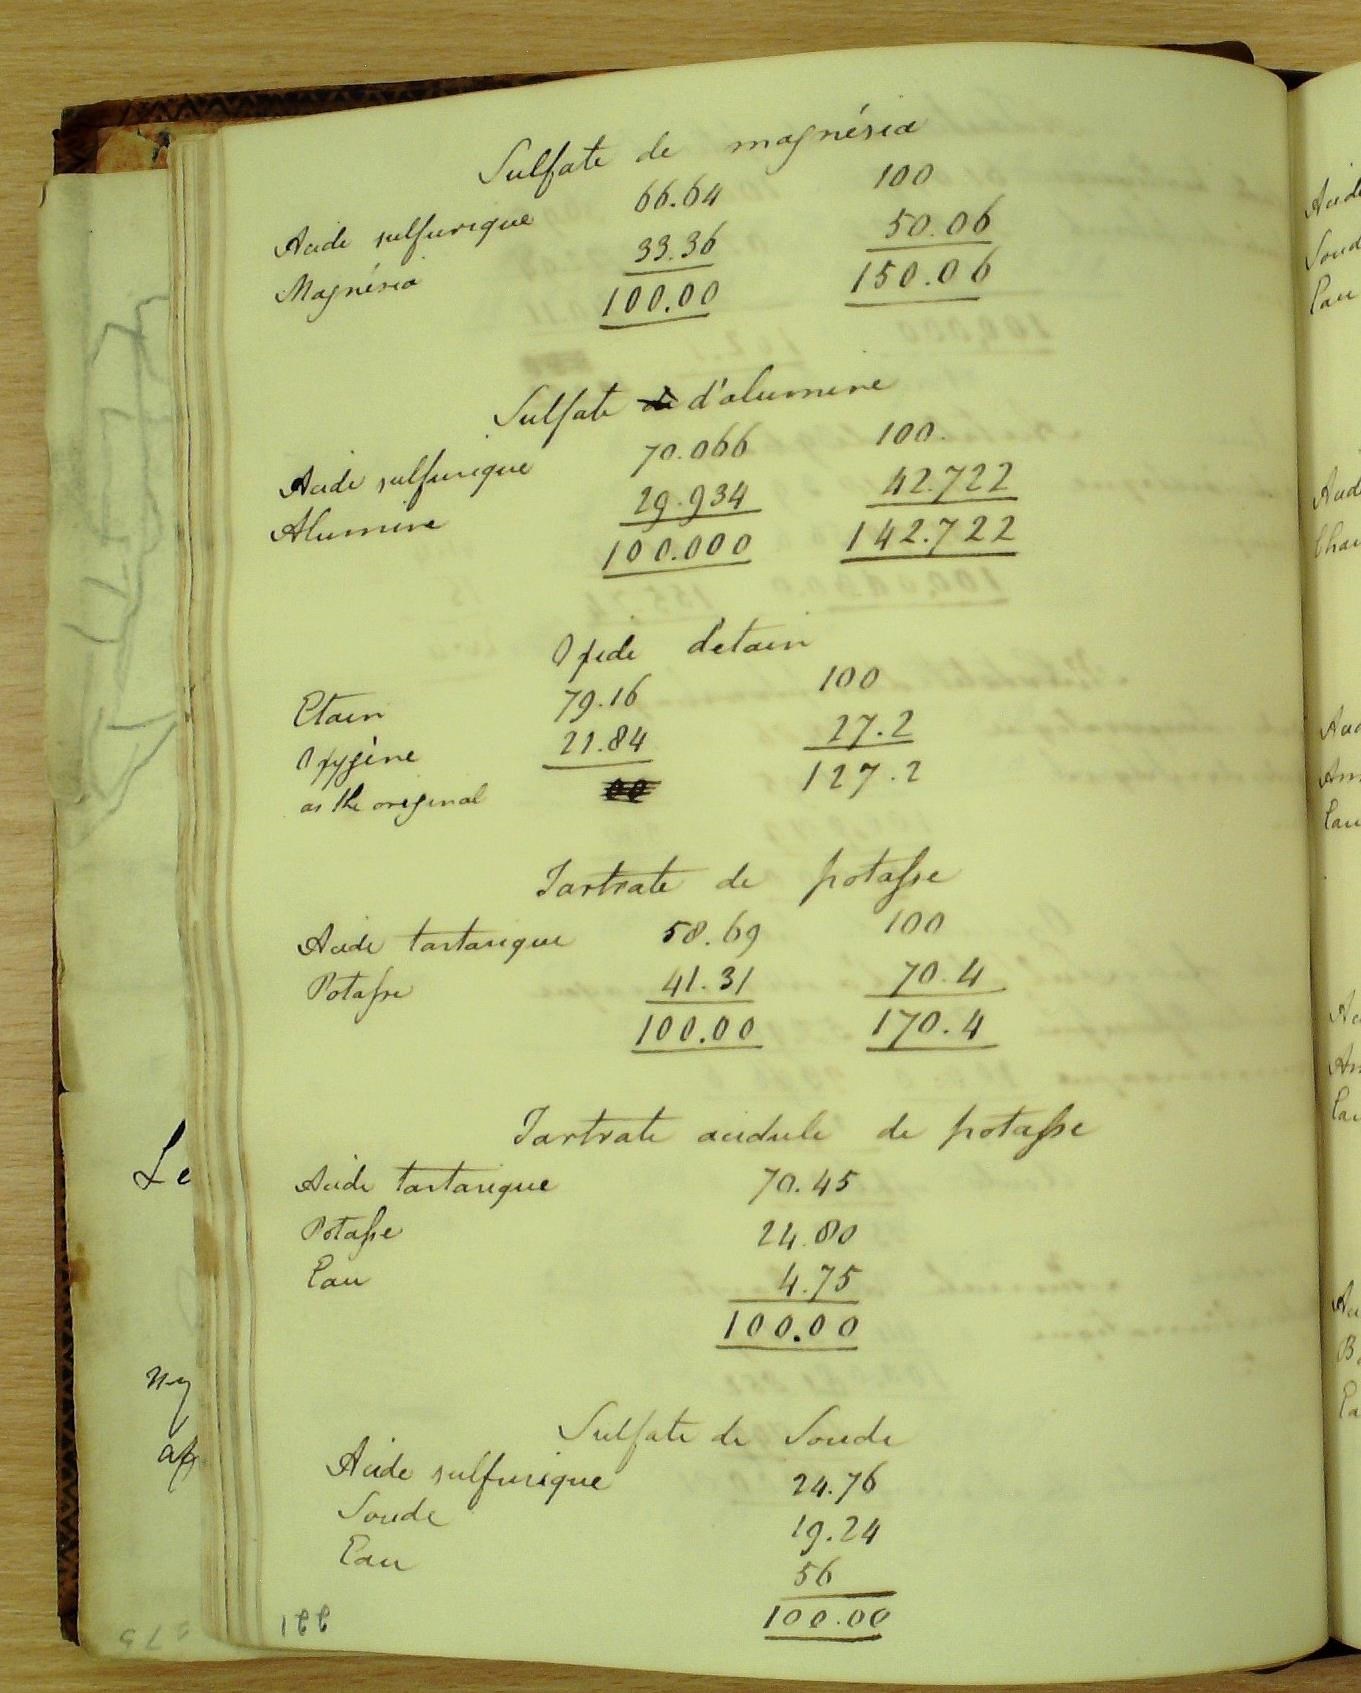 Sulfate de magnésia
Acide sulfurique 66.64 100
Magnésia 33.36 50.06
100.00 150.06
Sulfate de d'alumine
Acide sulfurique 70.066 100.
Alumine 29.934 42.722
100.000 142.722
Oxide d'etain
Etain 79.16 100
Oxygène 21.84 27.2
as the original 00 127.2
Tartrate de potasse
Acide tartarique 58.69 100
Potasse 41.31 70.4
100.00 170.4
Tartrate acidule de potasse
Acide tartarique 70.45
Potasse 24.80
Eau 4.75
100.00
Sulfate de Soude
Acide sulfurique 24.76
Soude 19.24
Eau 56
100.00
Le